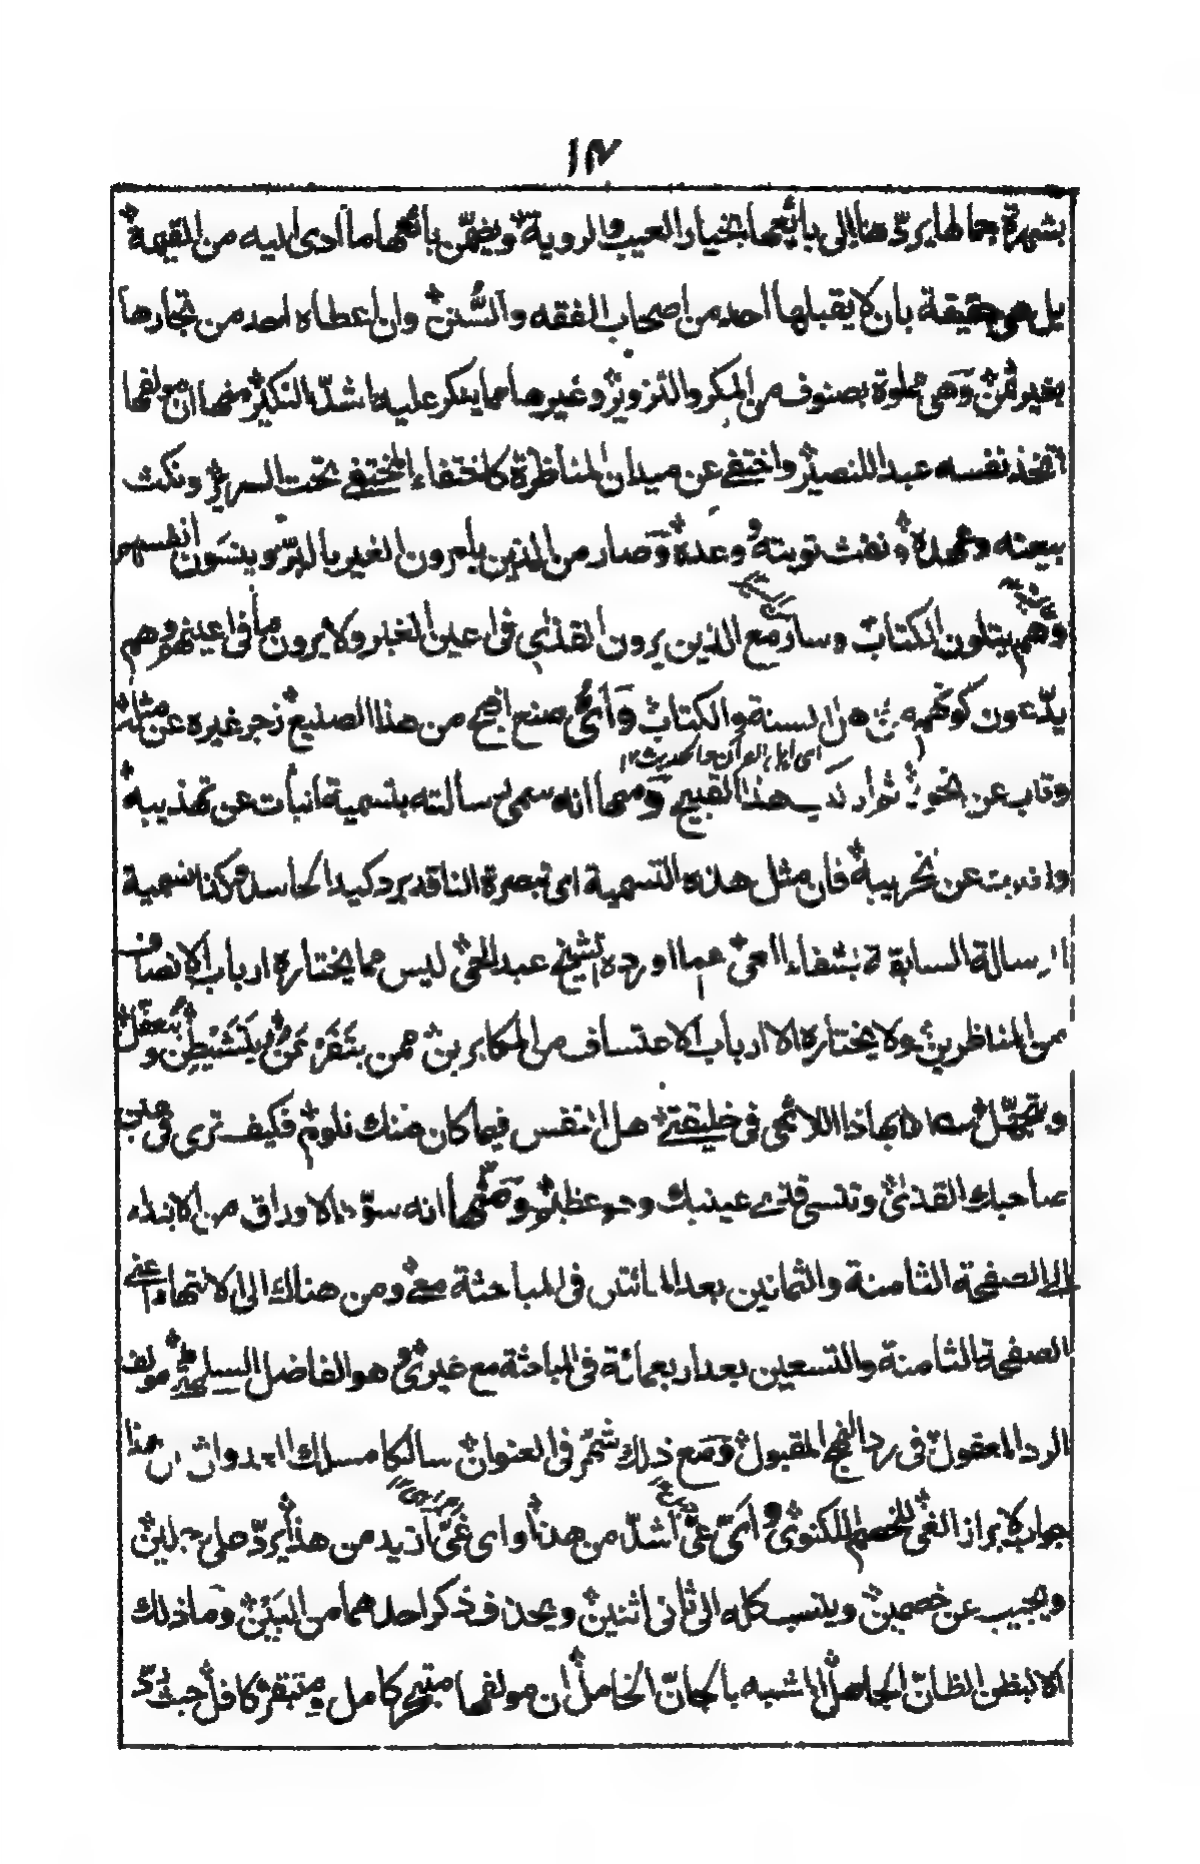 ١٣
بشهرة جمالها يردّها الى بائعها بخيار العيب والروية ويضمّن بائعها ما ادى اليه من القيمة
بل هو حقيقة بان لا يقبلها احد من اصحاب الفقه والسُّنن وان اعطاه احد من تجارها
بغير ثمن وهى مملوة بصنوف من المكر والتزوير وغيرها مما ينكر عليه باشدّ النكير منها ان مولفها
اتخذ نفسه عبد النصير واختفى عن ميدان المناظرة كاختفاء المختفى تحت السرير ونكث
بيعته وعهده ونفث توبته وعده وصار من الذين يامرون الغير بالبرّ وينسون انفسهم
وهم يتلون الكتاب وسار مع الذين يرون القذى فى اعين الغير ولا يرون ما فى اعينهم وهم
يدّعون كونهم من اهل السنة والكتاب واىّ صنع اقبح من هذا الصنيع زجر غيره عن مثله
اى اہل القرآن والحديث ١٢
وتاب عن نحوه ثم ارتكب هذا القبيح ومنها انه سمى رسالته بتسمية انبأت عن تهذيبه
واذنت عن تخريبه فان مثل هذه التسمية اى تبصرة الناقد برد كيد الحاسد وكذا تسمية
الرسالة السابقة بشفاء العى عما اورده الشيخ عبد الحى ليس مما يختاره ارباب الانصاف
من المناظرين ولا يختاره الا ارباب الاعتساف من المكابرين ممن
فى خليقتى هل انتفس فيما كان منك نلوم فكيف ترى فى عين
صاحبك القذى وتنسى قذى عينيك وهو عظيم ومنها انه سوّد الاوراق من الابتداء
الى الصفحة الثامنة والثمانين بعد المائتين فى المباحثة معى ومن هناك الى الانتهاء اعنى
الصفحة الثامنة والتسعين بعد اربعمائة فى المباحثة مع غيرى وهو الفاضل السيد مولف
الرد المعقول فى رد النهج المقبول ومع ذلك شمر فى العنوان سالكا مسلك العدوان ان هذا
جواب لابراز الغى للخصم اللكنوى واىّ عىّ اشدّ من هذا واى غىّ ازيد من هذا يردّ على رجلين
ويجيب عن خصمين وينسب كله الى ثانى اثنين ويحذف ذكر احدهما من البين وما ذلك
الا ليظن الظانّ الجاهل المشبه بالجانّ الخامل ان مولفها متبحر كامل ومتبقر كافل حيث ردّ